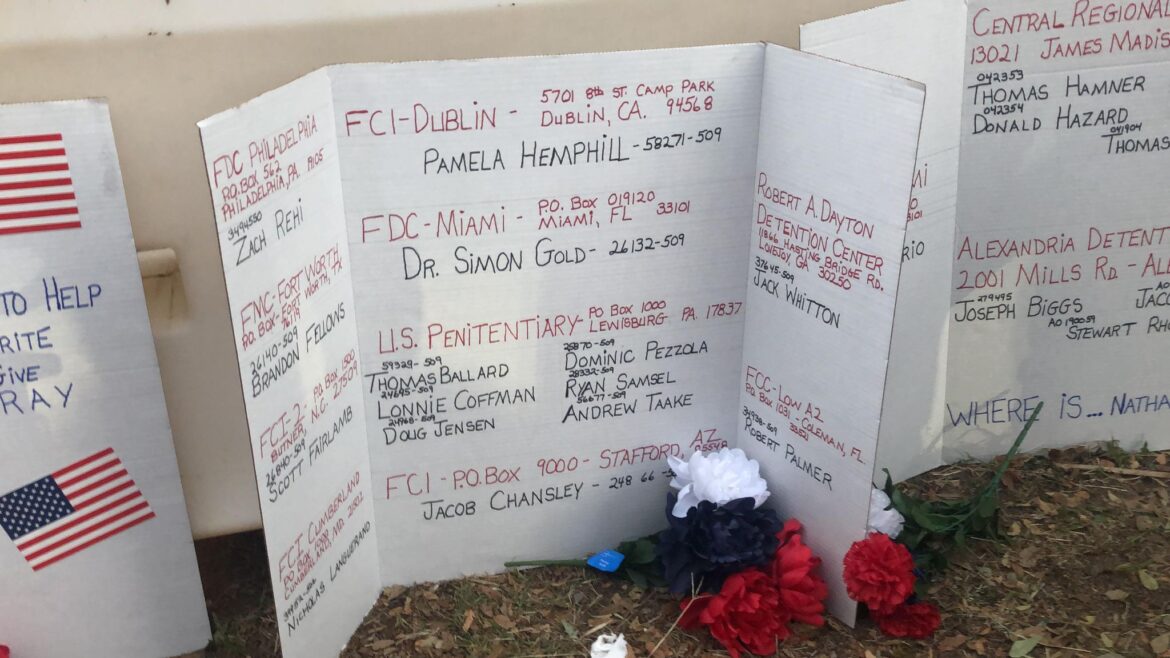 TO HELP
RITE
GIVE
RAY
FDC PHILADELPHIA
P.O. BOX 562
PHILADELPHIA, PA. 19105
ZACH REHI
FMC-FORT WORTH
P.O. BOX- FORT WORTH, TX
76119
26140-509
BRANDON FELLOWS
FCI-2- P.O. BOX 1500
BUTNER, N.C. 27509
26840-509
SCOTT FAIRLAMB
FCI CUMBERLAND
CUMBERLAND, MD. 21502
NICHOLAS
FCI-DUBLIN - 5701 8th ST. CAMP PARK
DUBLIN, CA. 94568
PAMELA HEMPHILL - 58271-509
FDC-MIAMI - P.O. BOX 019120
MIAMI, FL 33101
DR. SIMON GOLD - 26132-509
U.S. PENITENTIARY- PO BOX 1000
LEWISBURG PA 17837
59329-509
THOMAS BALLARD
24695-509
LONNIE COFFMAN
24968-509
DOUG JENSEN
26870-509
DOMINIC PEZZOLA
28332-509
RYAN SAMSEL
56677-509
ANDREW TAAKE
FCI - P.O. BOX 9000 - STAFFORD, AZ
JACOB CHANSLEY - 248 66
ROBERT A. DAYTON
DETENTION CENTER
11866 HASTING BRIDGE RD.
LOVEJOY GA 30250
37645-509
JACK WHITTON
FCC-LOW A2
P.O. BOX 1031 - COLEMAN, FL
33521
34938-509
ROBERT PALMER
CENTRAL REGIONAL
13021 JAMES MADIS
042353
THOMAS HAMNER
042354
DONALD HAZARD
041904
THOMAS
ALEXANDRIA DETENT
2001 MILLS RD - ALE
279495
JOSEPH BIGGS
JAC
A0190059
STEWART RH
WHERE IS... NATHA